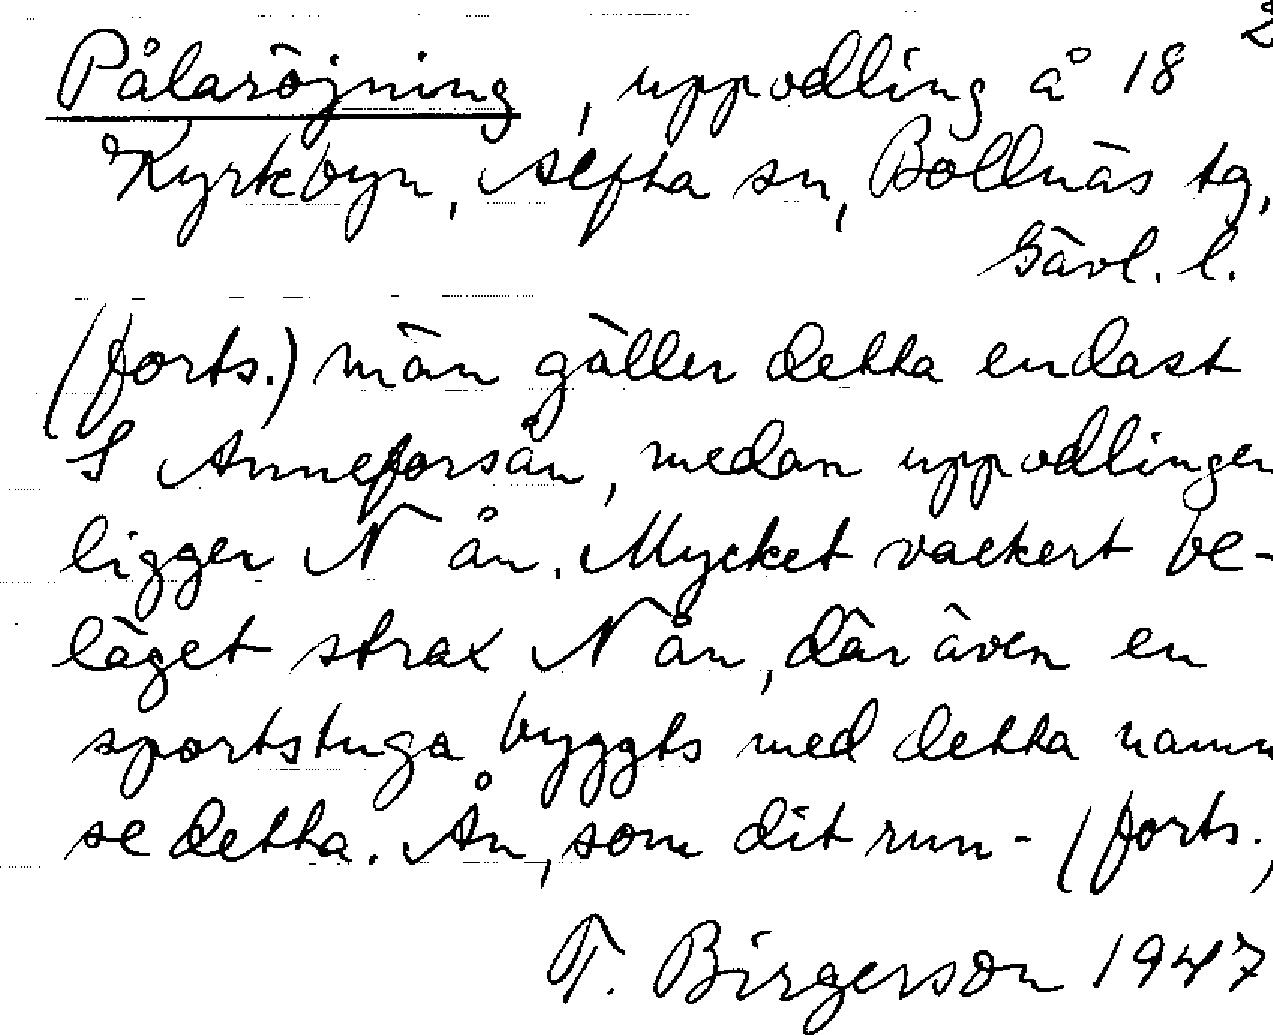 2
Pålaröjning, uppodling å 18
Kyrkbyn, Alfta sn, Bollnäs tg,
Gävl. l.
(forts.) män gäller detta endast
S Anneforsån, medan uppodlingen
ligger N ån. Mycket vackert be-
läget strax N ån, där även en
sportstuga byggts med detta namn
se detta. Ån, som dit run- (forts.)
T. Birgerson 1947